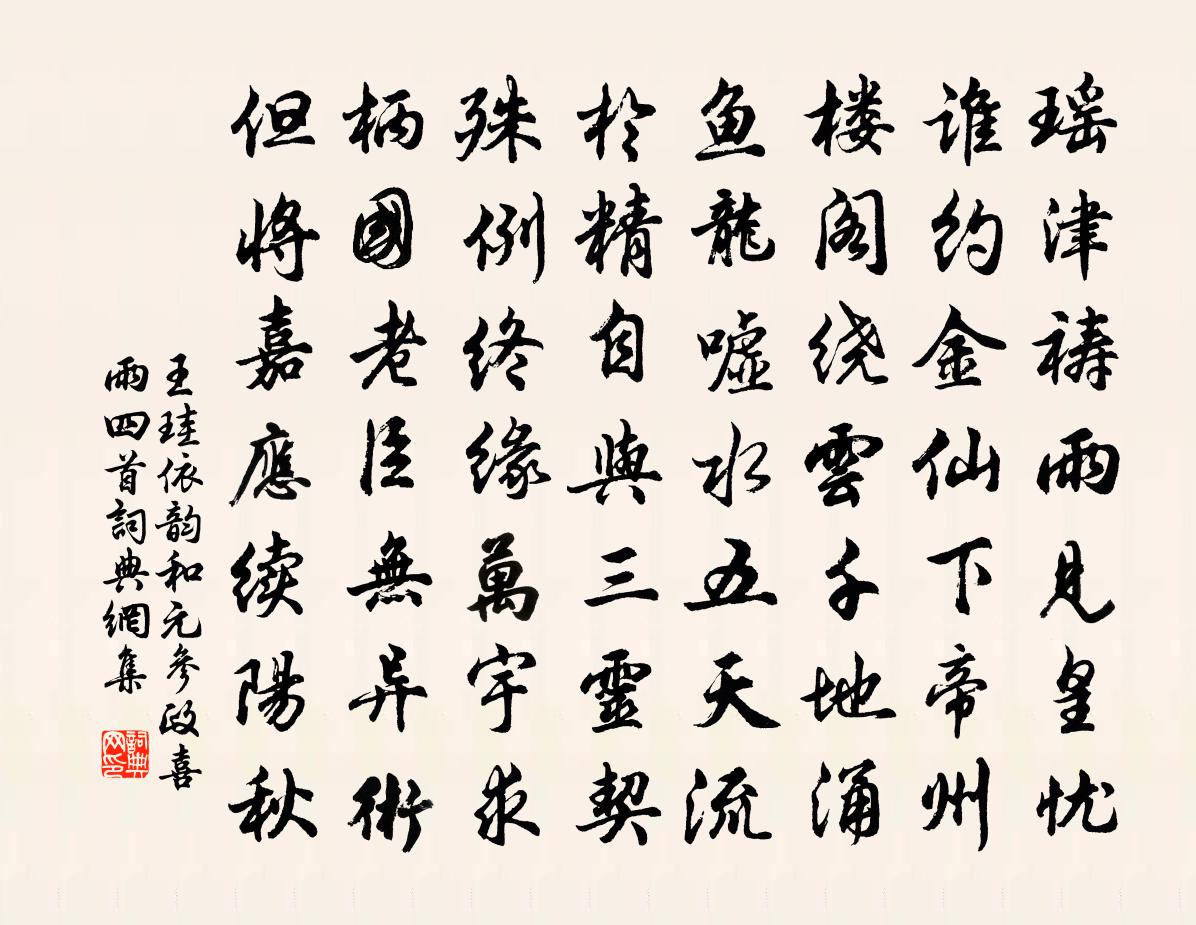 瑶津祷雨見皇忧
谁約金仙下帝州
楼阁绕雲千地涌
鱼龍嘘水五天流
於精自與三靈契
殊例终缘萬宇求
柄國老臣無异術
但将嘉應续陽秋
王珪依韵和元參政喜
雨四首詞典網集
詞典
网印